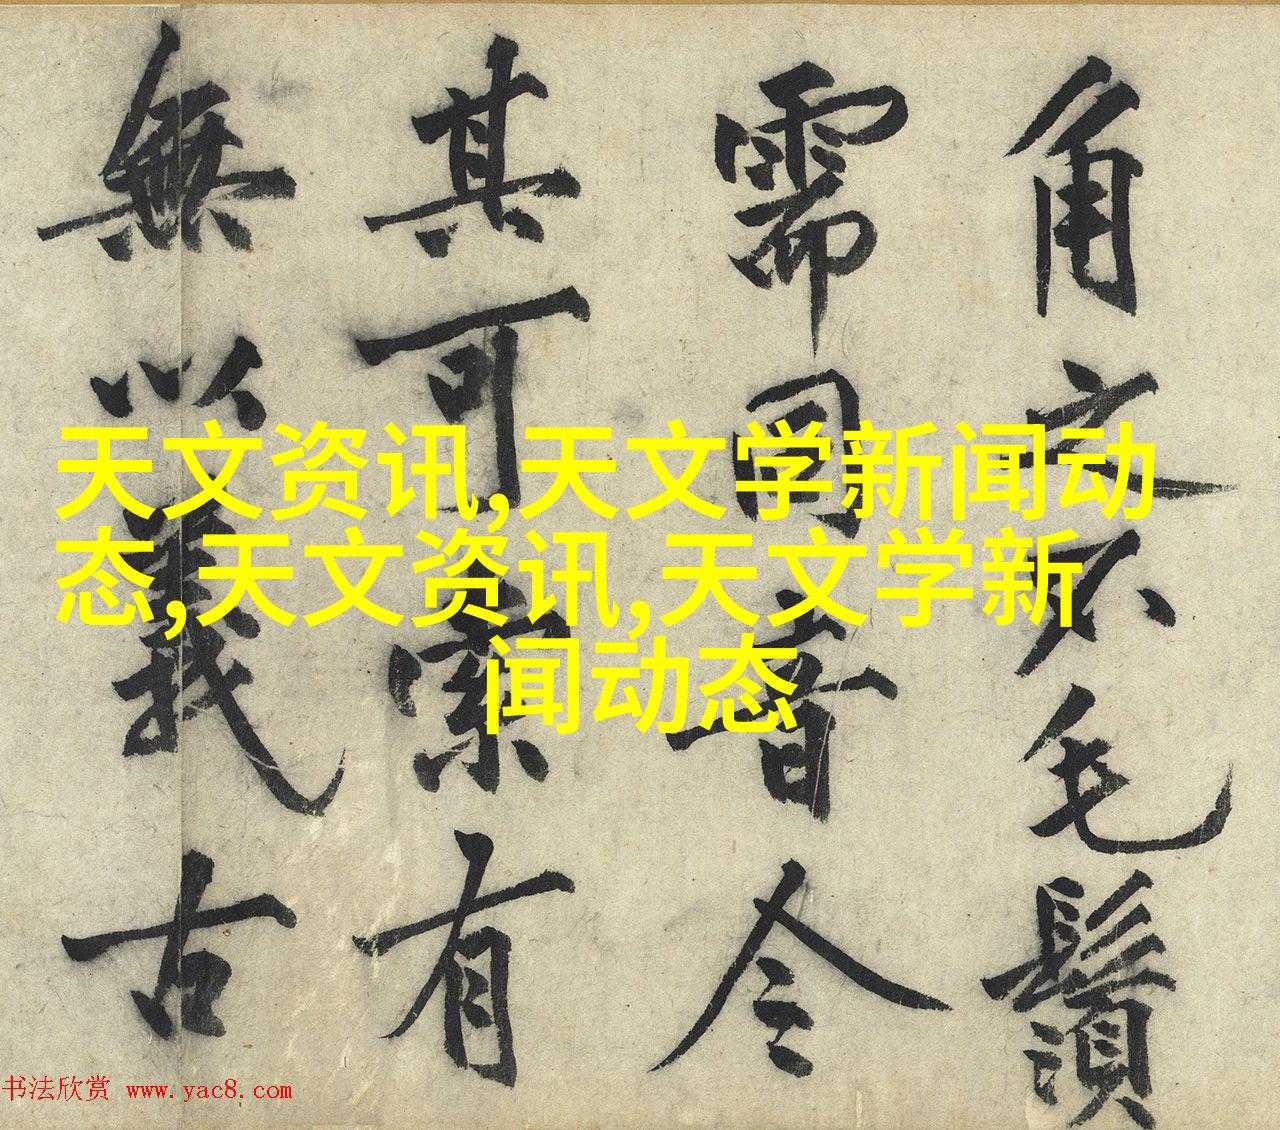 角之不毛鬚
需國者令
其可索有
無以義古
天文资讯,天文学新闻动
态,天文资讯,天文学新
闻动态
书法欣赏 www.yac8.com